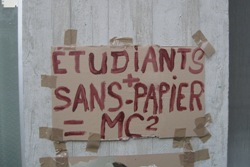 ETUDIANTS
+
SANS-PAPIER
= MC²